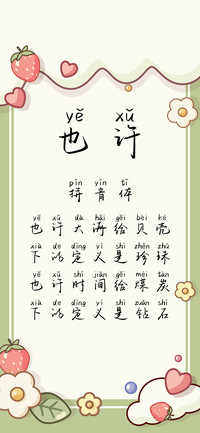 yě xǔ
也许
pīn yīn tǐ
拼音体
yě xǔ dà hǎi gěi bèi ké
也许大海给贝壳
xià de dìng yì shì zhēn zhū
下的定义是珍珠
yě xǔ shí jiān gěi méi tàn
也许时间给煤炭
xià de dìng yì shì zuàn shí
下的定义是钻石